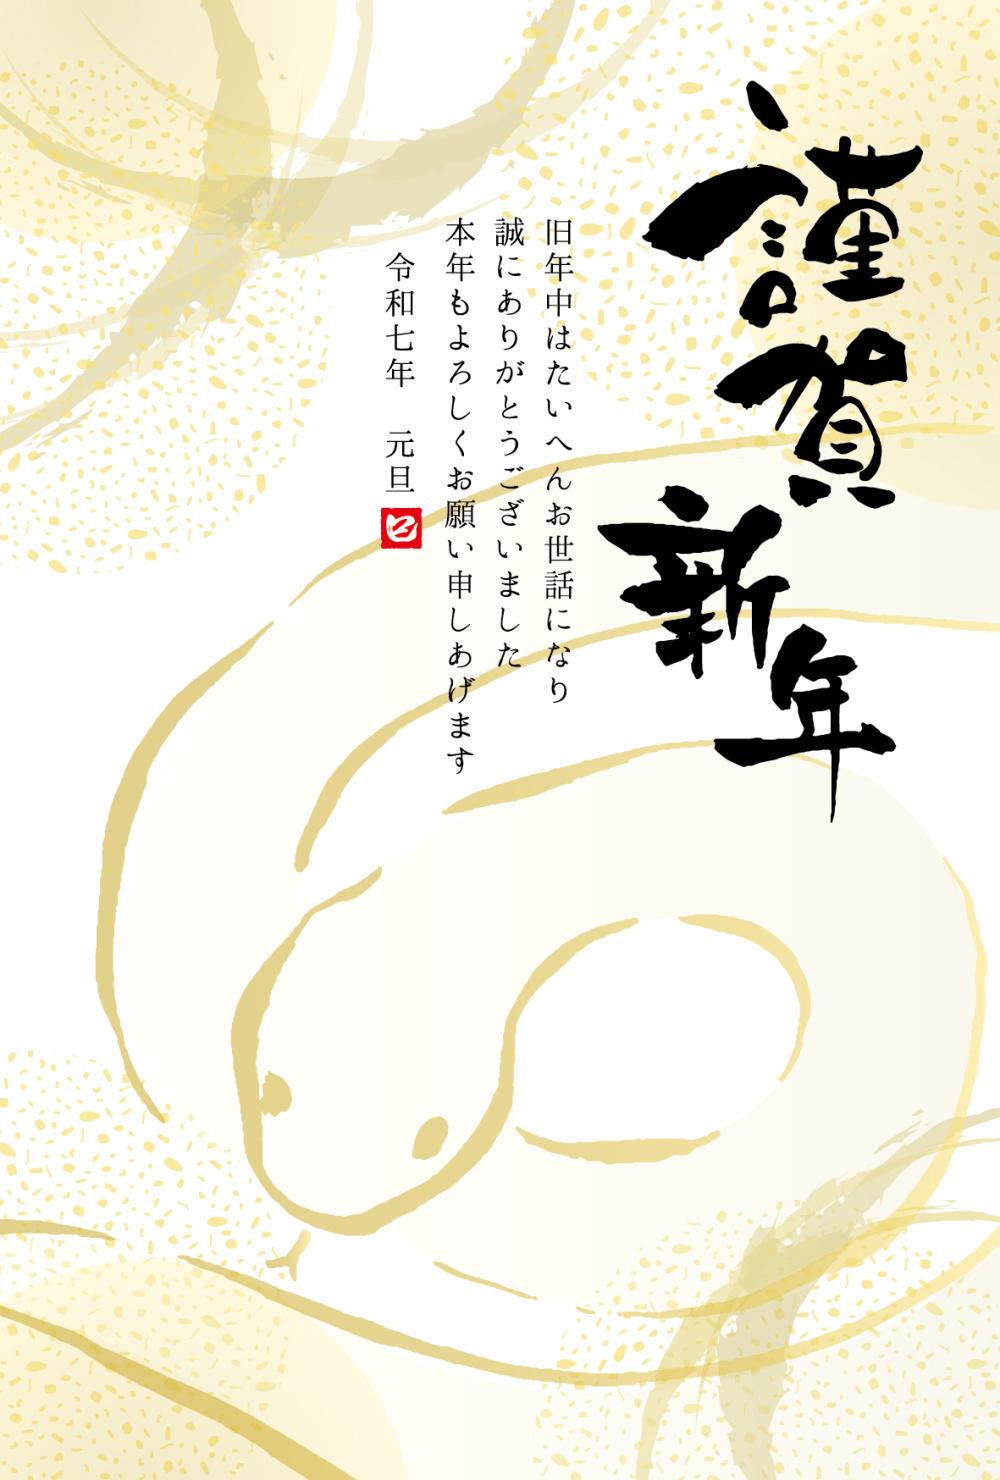 謹賀新年
旧年中はたいへんお世話になり
誠にありがとうございました
本年もよろしくお願い申しあげます
令和七年　元旦
巳